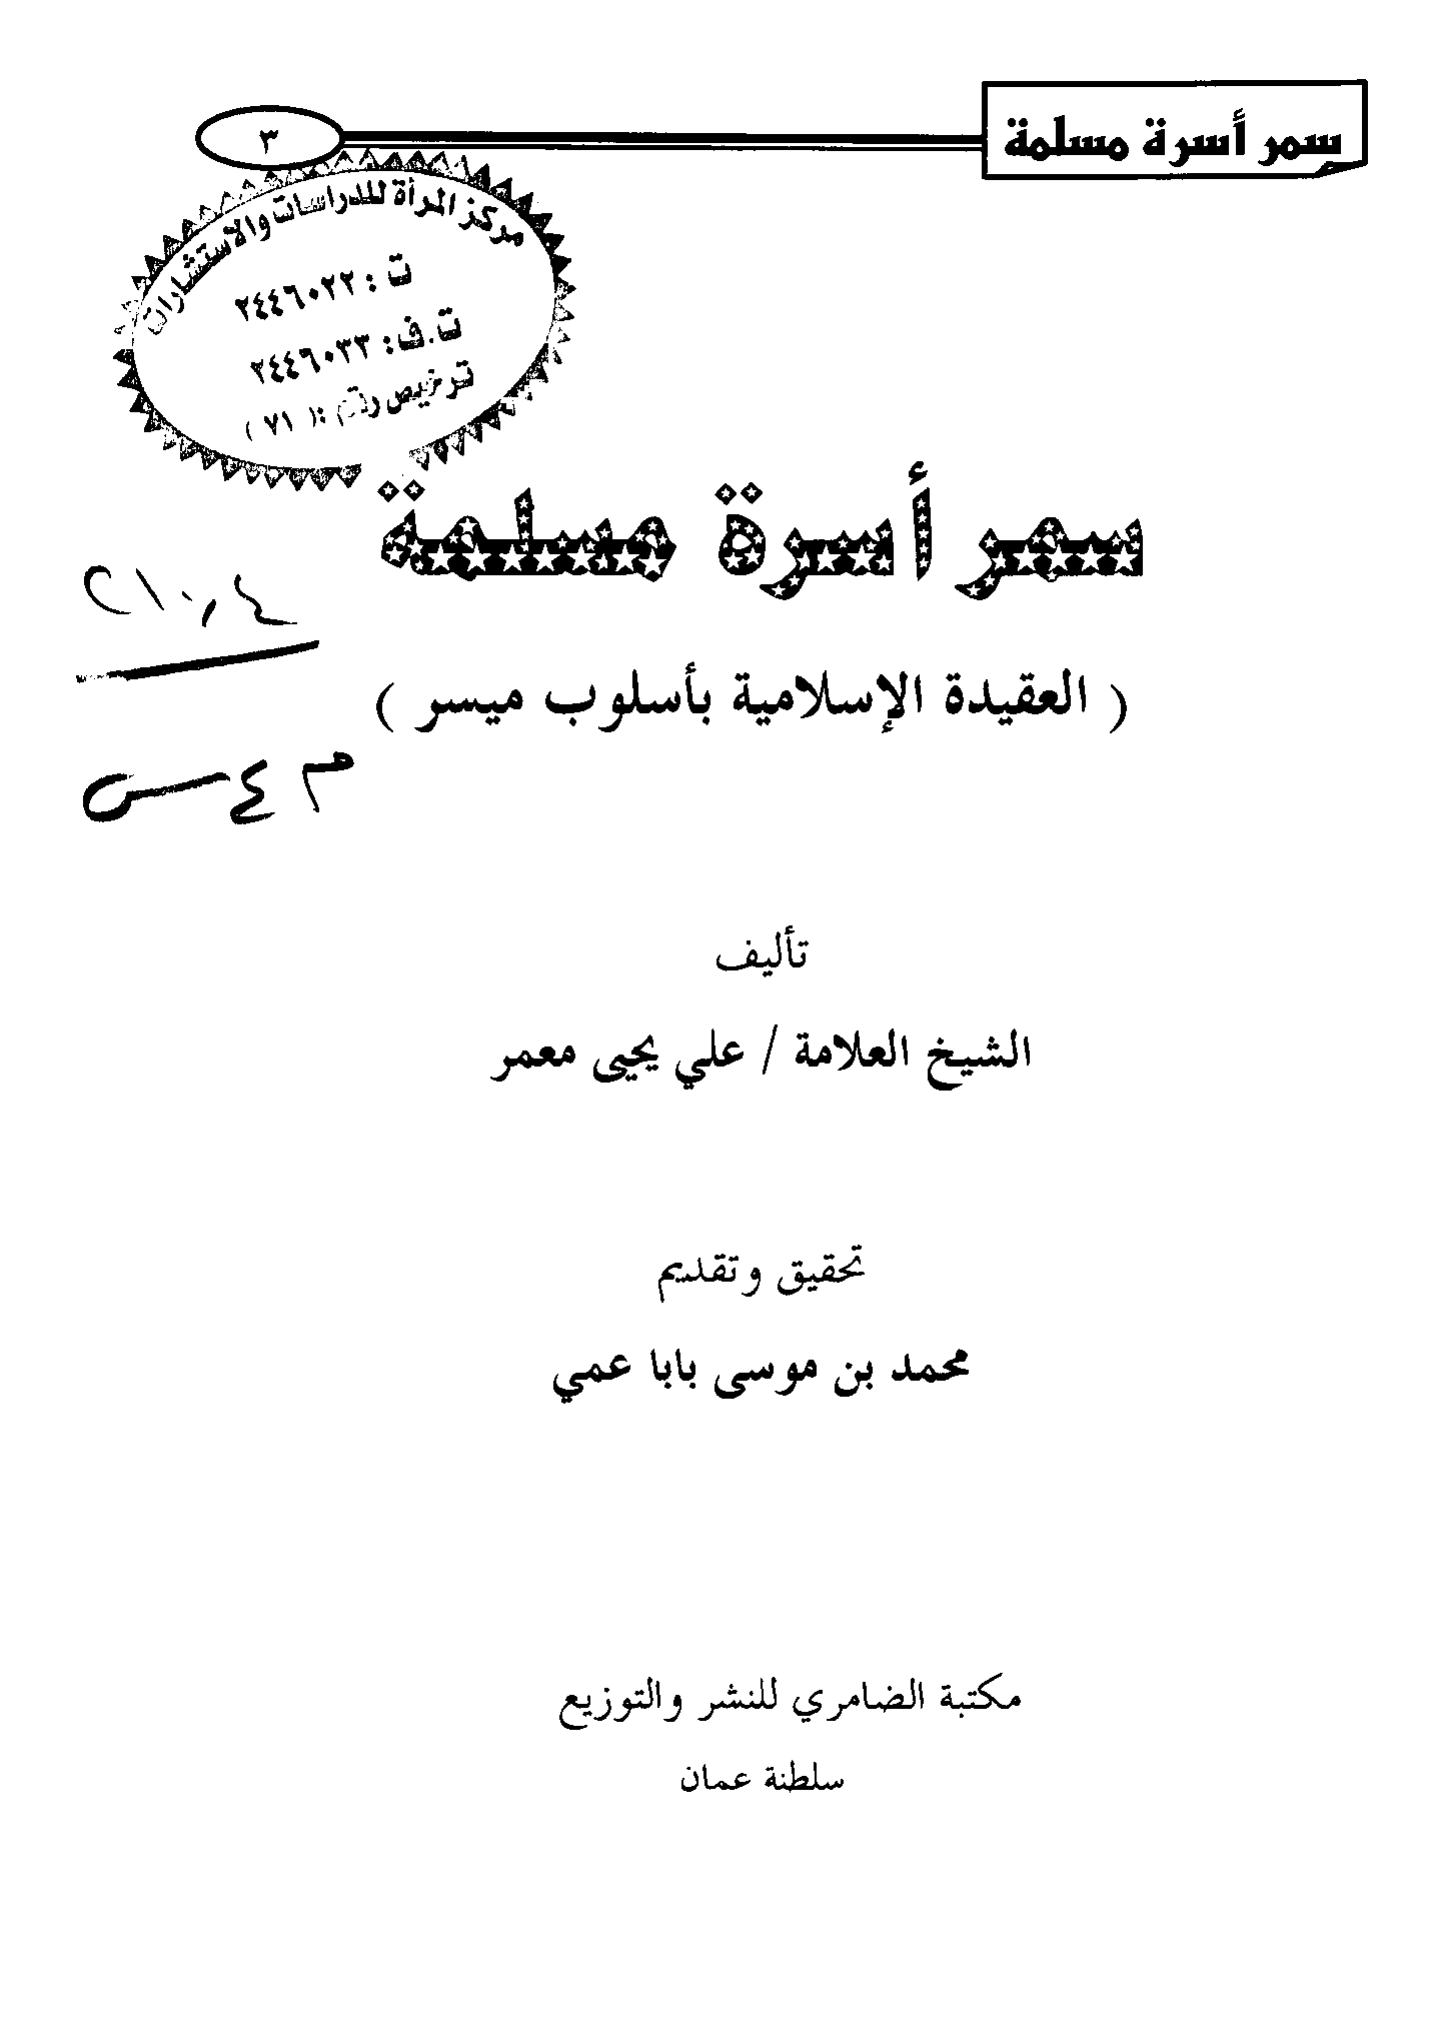 سمر أسرة مسلمة
٣
مركز المرأة للدراسات والاستشارات
ت : ٢٤٤٦٠٢٢
ت.ف: ٢٤٤٦٠٣٣
ترخيص رقم :( ٧١ )
سمر أسرة مسلمة
( العقيدة الإسلامية بأسلوب ميسر )
تأليف
الشيخ العلامة / علي يحيى معمر
تحقيق وتقديم
محمد بن موسى بابا عمي
مكتبة الضامري للنشر والتوزيع
سلطنة عمان